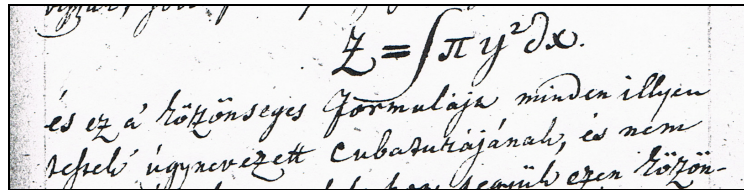 Z = ∫ π y² ∂x.
és ez a' közönséges formulája minden illyen
testek' úgynevezett Cubaturájának, és nem
ezen közön-